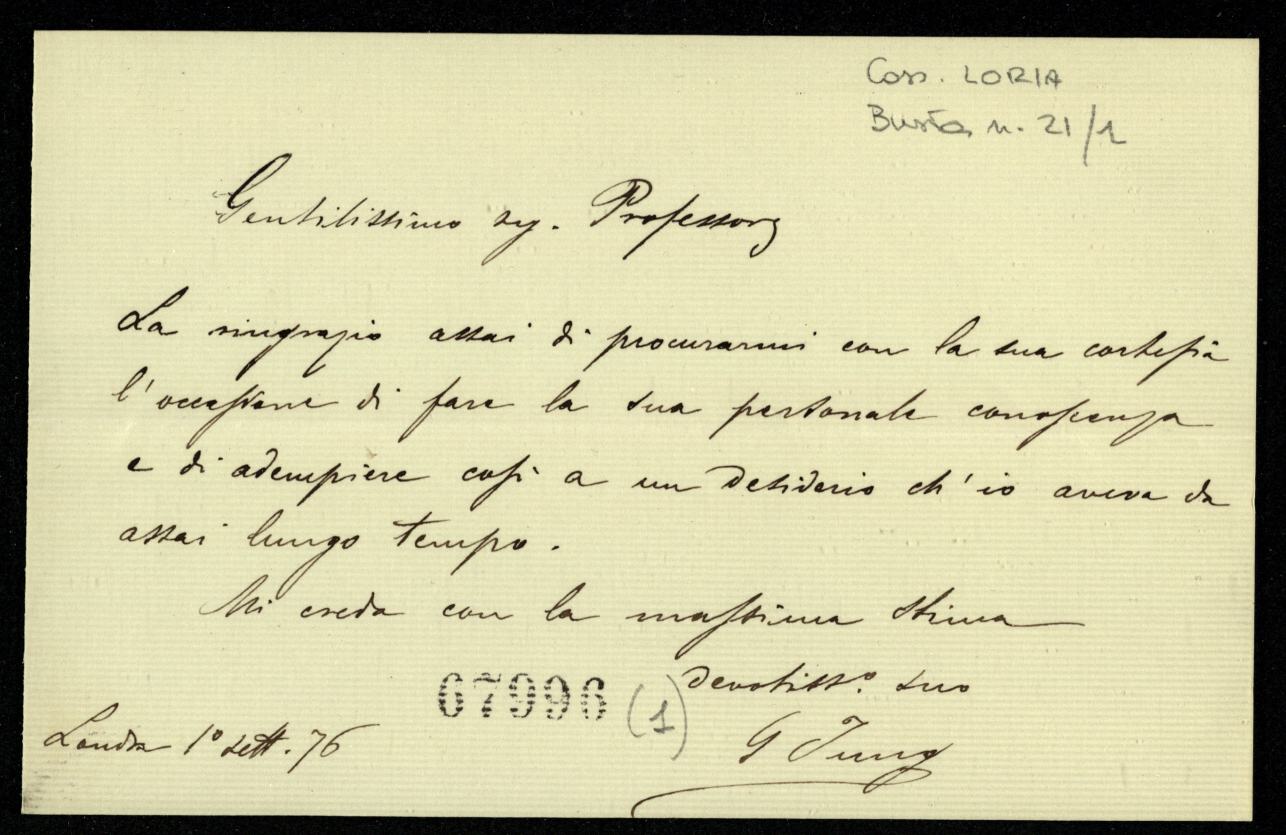 Cass. LORIA
Busta n. 21/1
Gentilissimo sig. Professore
La ringrazio assai di procurarmi con la sua cortesia
l'occasione di fare la sua personale conoscenza
e di adempiere così a un desiderio ch'io aveva da
assai lungo tempo.
Mi creda con la massima stima
devotiss.o suo
67996 (1)
G Jung
Londra 1o sett. 76